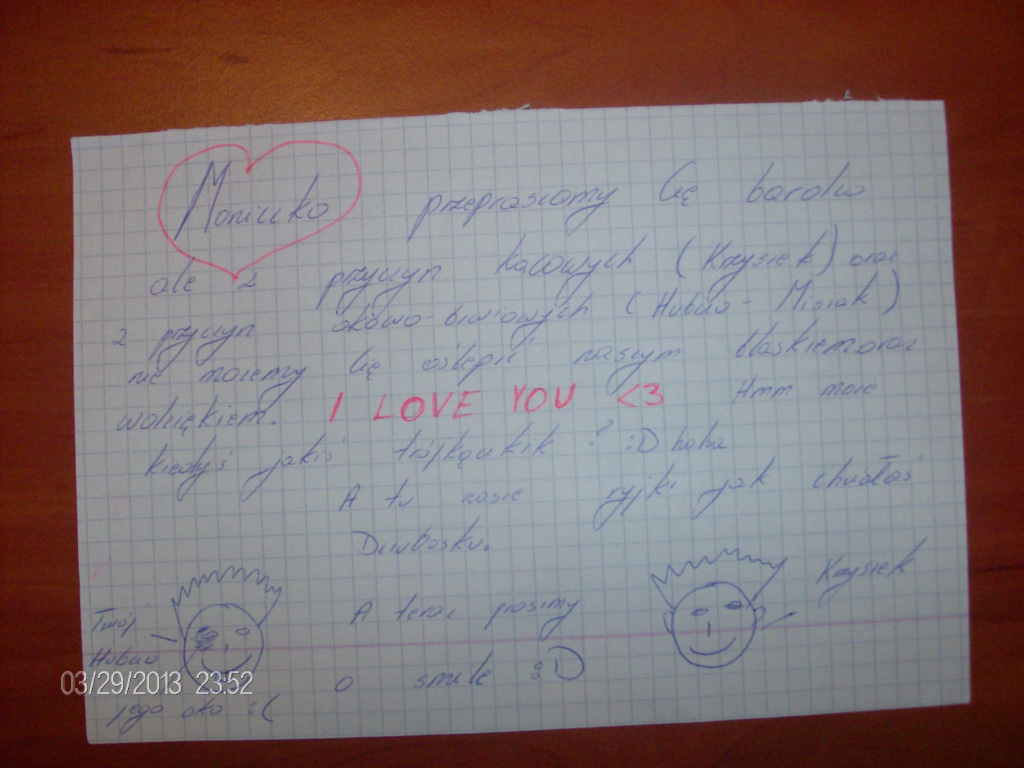 Moniczko przepraszamy Cię bardzo
ale z przyczyn kacowych (Krzysiek) oraz
z przyczyn okowo-brwiowych (Hubcio - Misiak)
nie możemy Cię oślepić naszym blaskiem oraz
wdziękiem. I LOVE YOU <3 Hmm może
kiedyś jakiś trójkącik ? :D haha
A tu nasze ryjki jak chciałaś
Dziubasku.
Krzysiek
Twój A teraz prosimy
Hubcio o smile :D
jego oko :(
03/29/2013 23:52